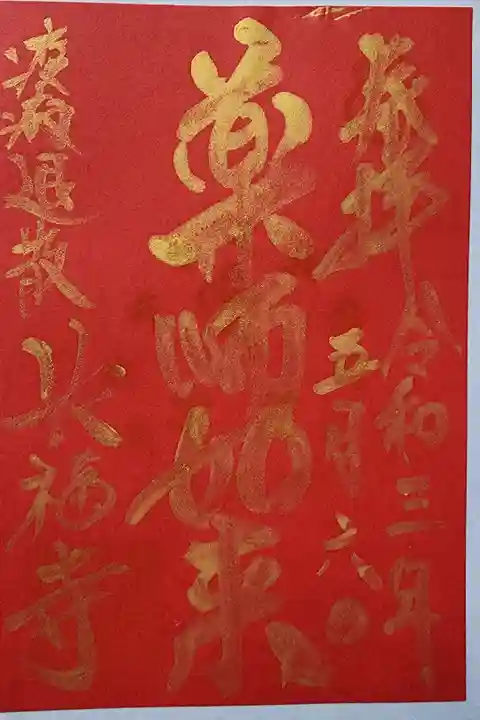 奉拝 令和三年
五月六日
薬師如来
疫病退散
福寺